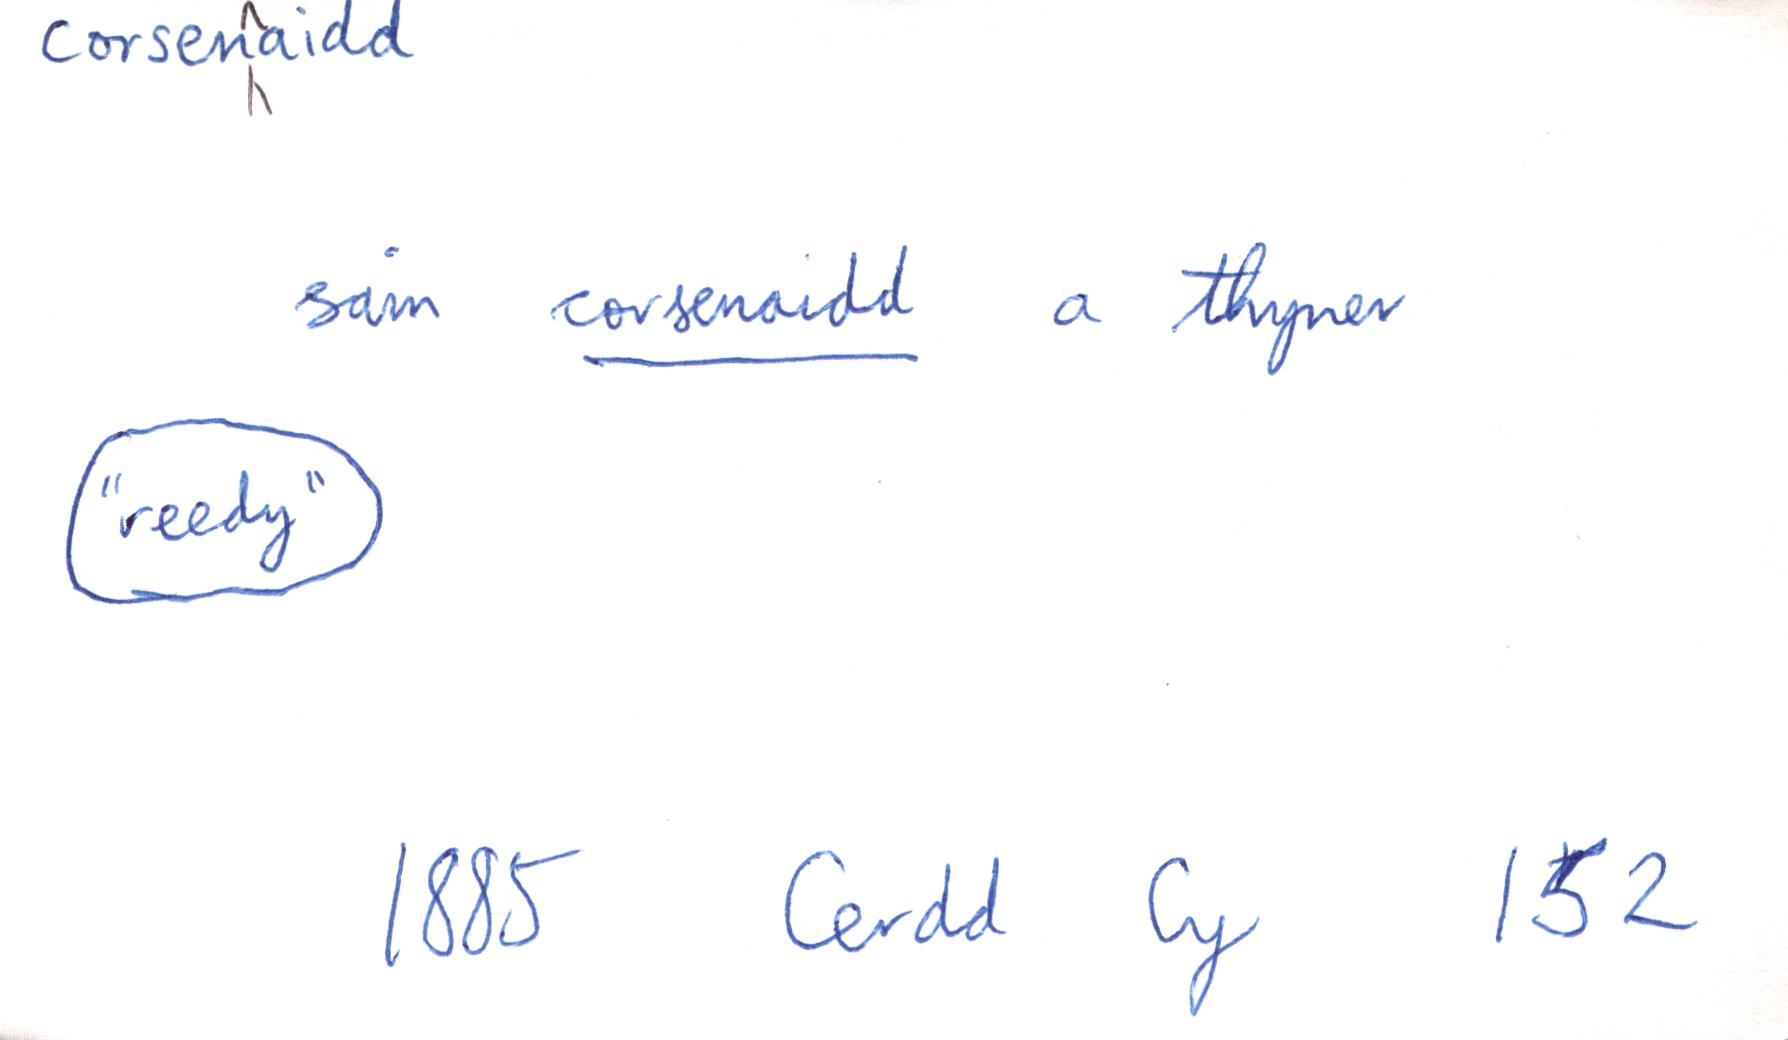 corsenaidd
sain corsenaidd a thyner
"reedy"
1885 Cerdd Cy 152